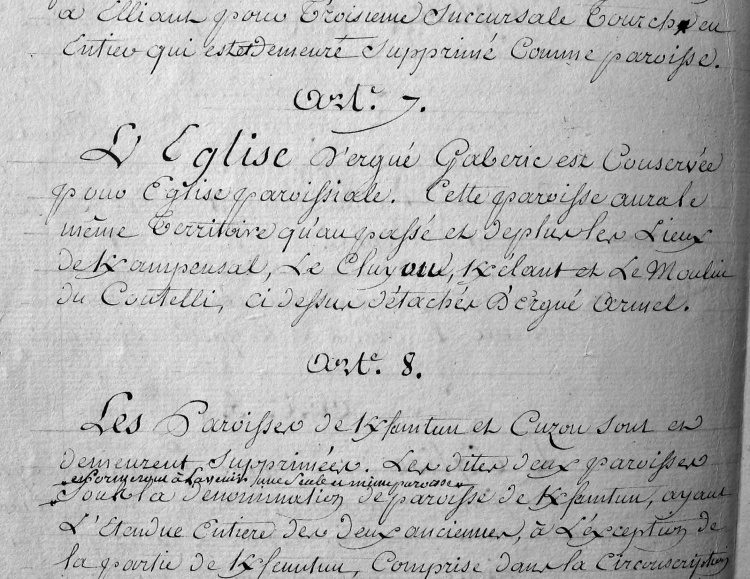 à Elliant pour Troisieme Succursale Tourch en
Entier qui est et demeure Supprimé Comme paroisse.
Arte. 7.
L'Eglise d'ergué Gaberic est Conservée
pour Eglise paroissiale. Cette paroisse aura le
même Territoire qu'au passé et de plus les Lieux
de Kampensal, Le Cluyou, Kélant et Le Moulin
du Coutelli, ci dessus détachés D'ergué Armel.
Arte. 8.
Les Paroisses de Kfeuntun et Cuzou sont et
demeurent Supprimées. Les dites deux paroisses
en formeront à l'avenir une Seule et même paroisse
Sous la dénomination de paroisse de Kfeuntun, ayant
L'Etendue Entiere des deux anciennes, à L'exception de
la partie de Kfeuntun, Comprise dans la Circonscription